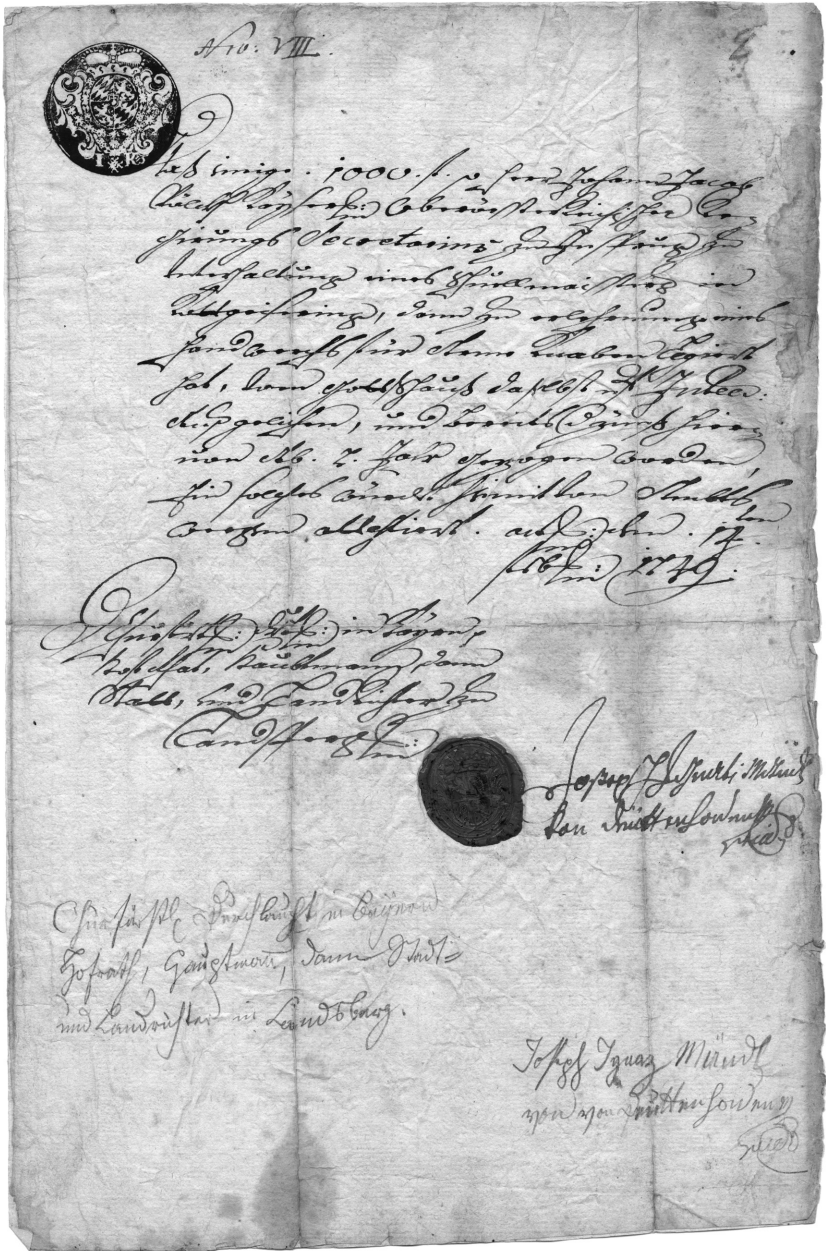 Nro: VIII.
1 K
Daß ienige 1000. f. so Herr Johann Jacob
Wolff Kayserl: Oberösterreichischer Re-
gierungs Secretarius zu Insprug zu
Unterhaltung eines Schuellmaisters in
Kottgeisering, dann zu erlehrnung eines
Handwerchs für Arme Knaben Legiert
hat, dem Gottshauß daselbst
Außgelichen, und bereits hier-
von ab 2. Jahr gezogen worden,
Ein solches würdt hiemit von Ambts
weegen attestiert. den 14.ten
1749.
Churfrtl: Drtl: in Bayrn
Hofrhat, Haubtmann, dann
Statt, und Landrichter zu
Landtsperg
Joseph
von
Churfürstl. Durchlaucht in Bayern
Hofrath, Hauptmann, dann Stadt-
und Landrichter in Landsberg.
Joseph Ignaz Mändl
von von Deuttenhofen